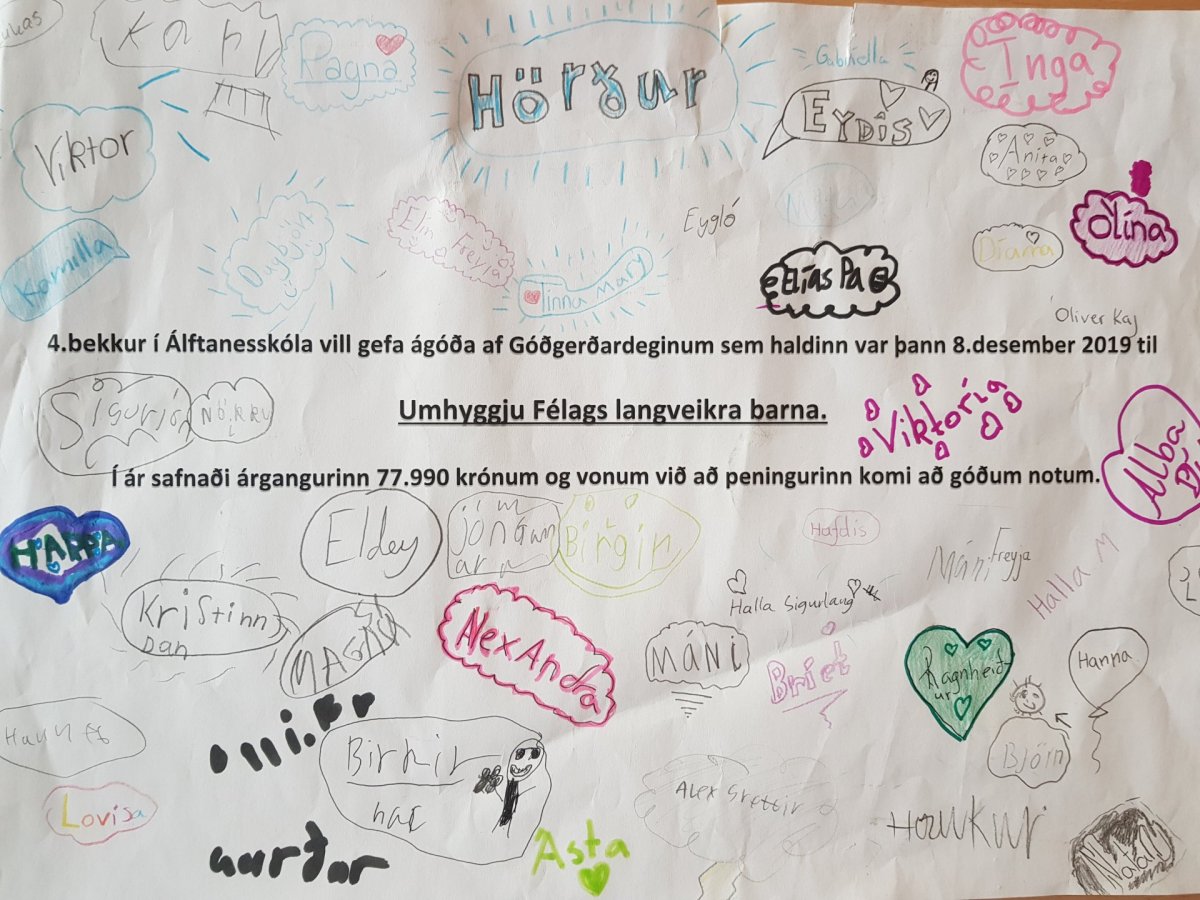 Karl
Ragna
Hörður
Gabriella
EYDÍS
Inga
Viktor
Aníta
Ólína
Kamilla
Dagbjör
Elín Freyja
Tinna Mary
Eygló
Elías
Oliver Kaj
4.bekkur í Álftanesskóla vill gefa ágóða af Góðgerðardeginum sem haldinn var þann 8.desember 2019 til
Sigurjón
Umhyggju Félags langveikra barna.
Viktoría
Alba
Í ár safnaði árgangurinn 77.990 krónum og vonum við að peningurinn komi að góðum notum.
HARPA
Eldey
Hafdís
Máni Freyja
Halla M
Kristinn
Dan
Halla Sigurlaug
AlexAndra
MÁNI
Bríet
Ragnheið
ur
Hanna
Björn
Birkir
Lovísa
Alex Grettir
Haukur
Asta
Natan